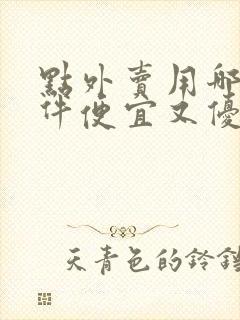 點外賣用哪
件便宜又優
天青色的鈴鐺